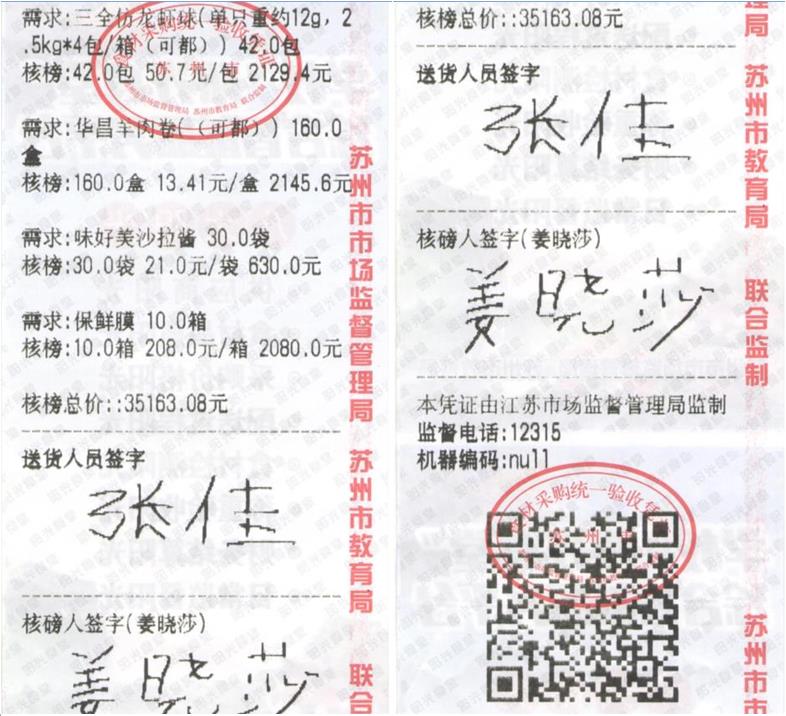 需求:三全仿龙虾球(单只重约12g，2
.5kg*4包/箱（可都）) 42.0包
核榜:42.0包 50.7元/包 2129.4元
需求:华昌羊肉卷(（可都）) 160.0
盒
核榜:160.0盒 13.41元/盒 2145.6元
需求:味好美沙拉酱 30.0袋
核榜:30.0袋 21.0元/袋 630.0元
需求:保鲜膜 10.0箱
核榜:10.0箱 208.0元/箱 2080.0元
核榜总价::35163.08元
送货人员签字
张佳
核磅人签字(姜晓莎)
姜晓莎
苏州市市场监督管理局 苏州市教育局 联合
核榜总价::35163.08元
送货人员签字
张佳
核磅人签字(姜晓莎)
姜晓莎
本凭证由江苏市场监督管理局监制
监督电话:12315
机器编码:null
食材采购统一验收凭证
苏州市
理局 苏州市教育局 联合监制
苏州市市